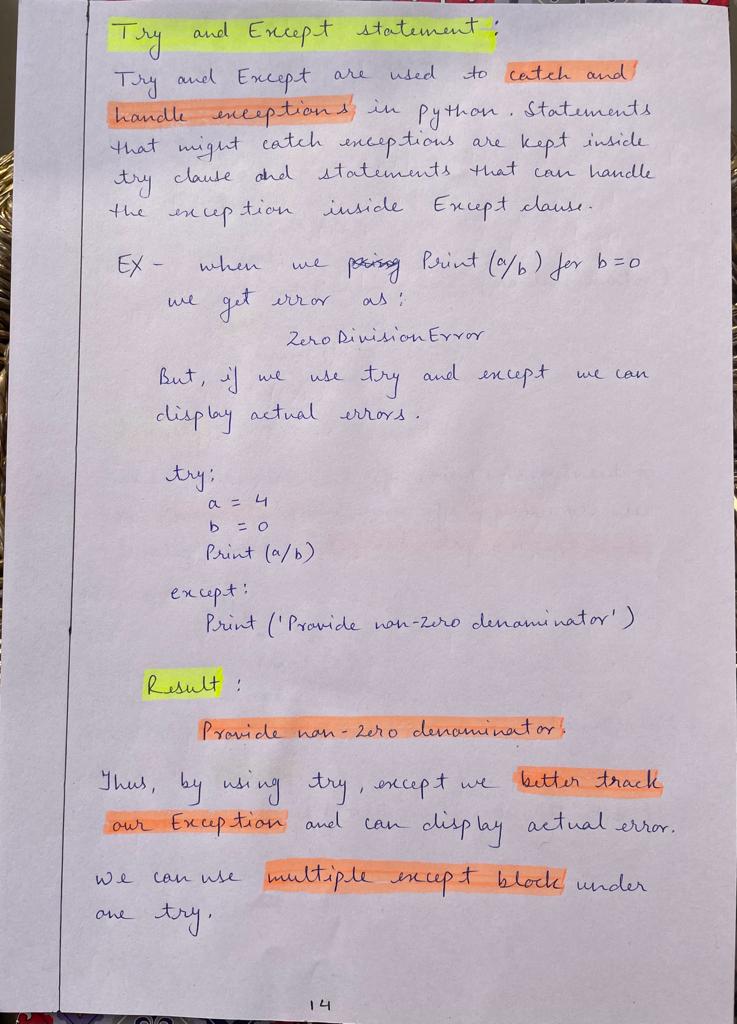 Try and Except statement:
Try and Except are used to catch and
handle exceptions in python. Statements
that might catch exceptions are kept inside
try clause and statements that can handle
the exception inside Except clause.
EX - when we Print (a/b) for b=0
we get error as:
ZeroDivisionError
But, if we use try and except we can
display actual errors.
try:
a = 4
b = 0
Print (a/b)
except:
Print ('Provide non-zero denominator')
Result :
Provide non-zero denominator.
Thus, by using try, except we better track
our Exception and can display actual error.
we can use multiple except block under
one try.
14